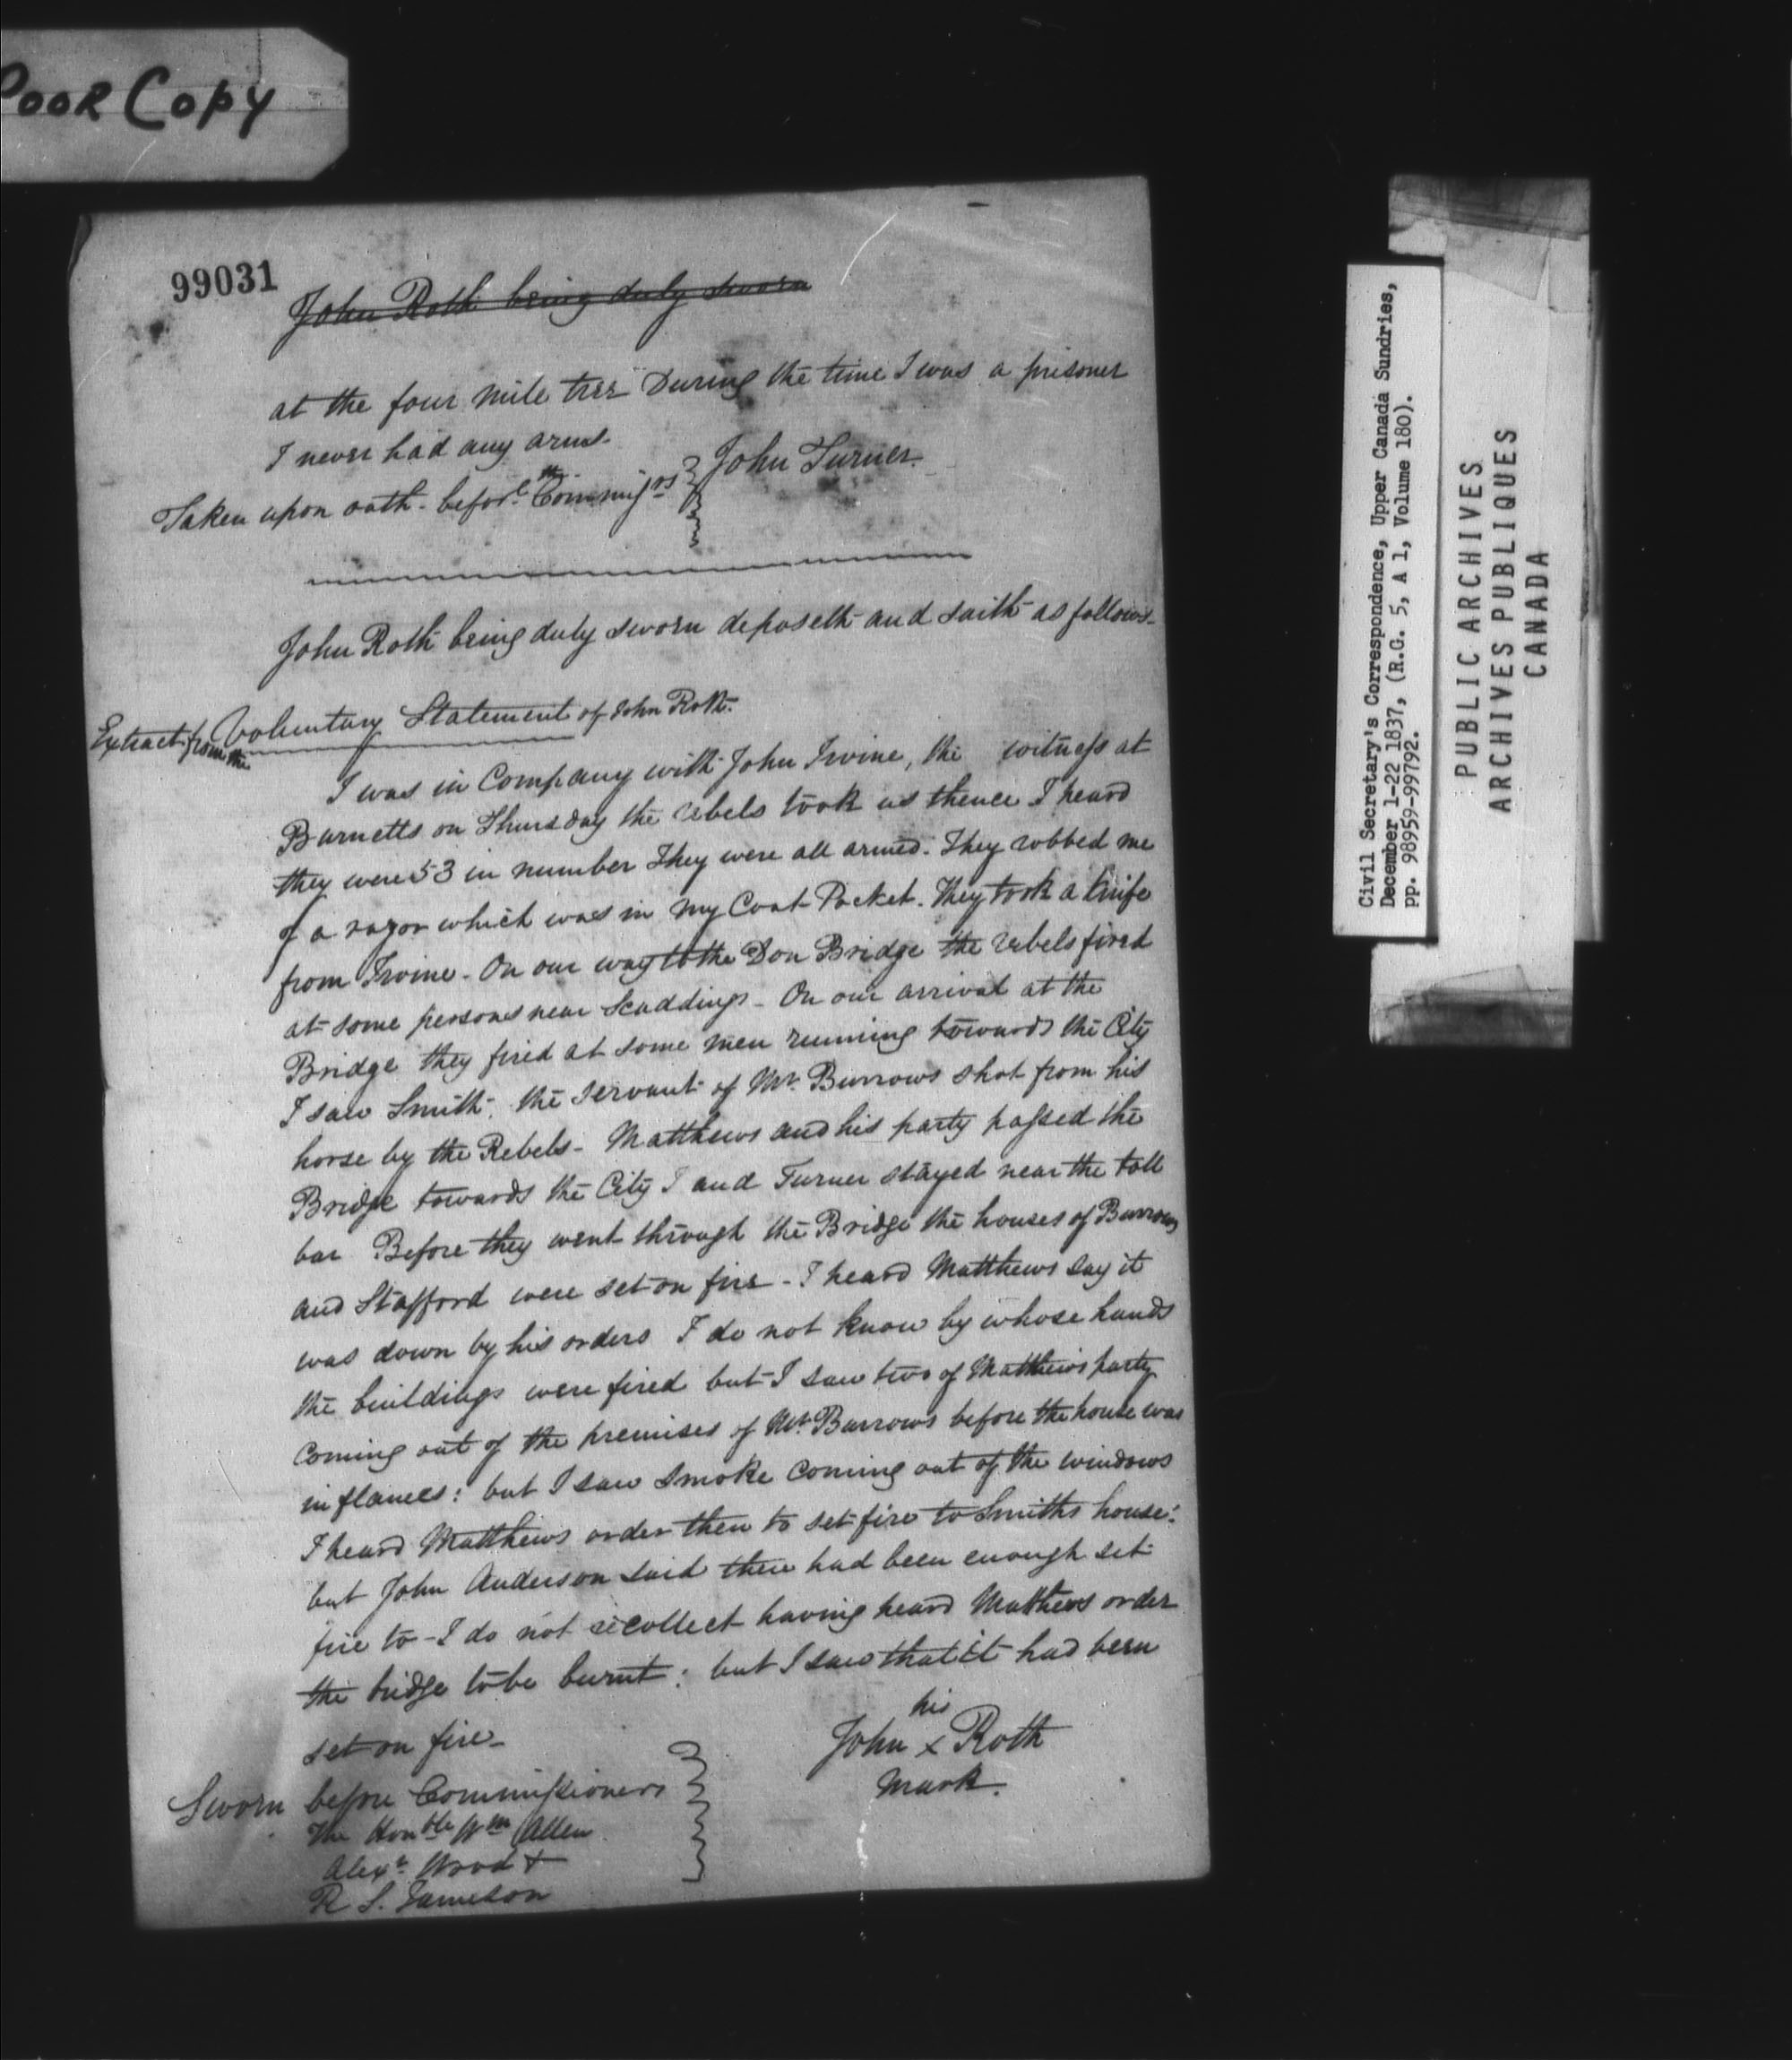 Poor Copy
99031
John Roth being duly sworn
at the four mile tree During the time I was a prisoner
I never had any arms.
Taken upon oath before the Commiſrs John Turner.
John Roth being duly sworn deposeth and saith as follows-
Extract from the Voluntary Statement of John Roth.
I was in Company with John Irvine, the witneſs at
Burnetts on Thursday the rebels took us thence I heard
they were 53 in number They were all armed. They robbed me
of a razor which was in my Coat Pocket. They took a knife
from Irvine - On our way to the Don Bridge the rebels fired
at some persons near Scaddings - On our arrival at the
Bridge they fired at some men running towards the City
I saw Smith, the servant of Mr. Burrows shot from his
horse by the Rebels - Matthews and his party paſsed the
Bridge towards the City I and Turner stayed near the toll
bar Before they went through the Bridge the houses of Burrows
and Stafford were set on fire - I heard Matthews say it
was down by his orders I do not know by whose hands
the buildings were fired but I saw two of Matthews party
coming out of the premises of Mr. Burrows before the house was
in flames: but I saw smoke coming out of the windows
I heard Matthews order then to set fire to Smiths house:
but John Anderson said there had been enough set
fire to - I do not recollect having heard Matthews order
the bridge to be burnt: but I saw that it had been
set on fire -
his
John x Roth
mark.
Sworn before Commiſsioners
The Honble Wm Allen
Alexr. Wood &
R. S. Jameson
Civil Secretary's Correspondence, Upper Canada Sundries,
December 1-22 1837, (R.G. 5, A 1, Volume 180).
pp. 98959-99792.
PUBLIC ARCHIVES
ARCHIVES PUBLIQUES
CANADA